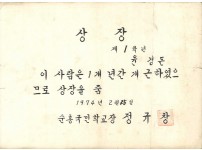 상 장
제 1 학년
윤정돈
이 사람은 1개년간 개근하였으
므로 상장을 줌
1974년 2월 일
순흥국민학교장 정규창